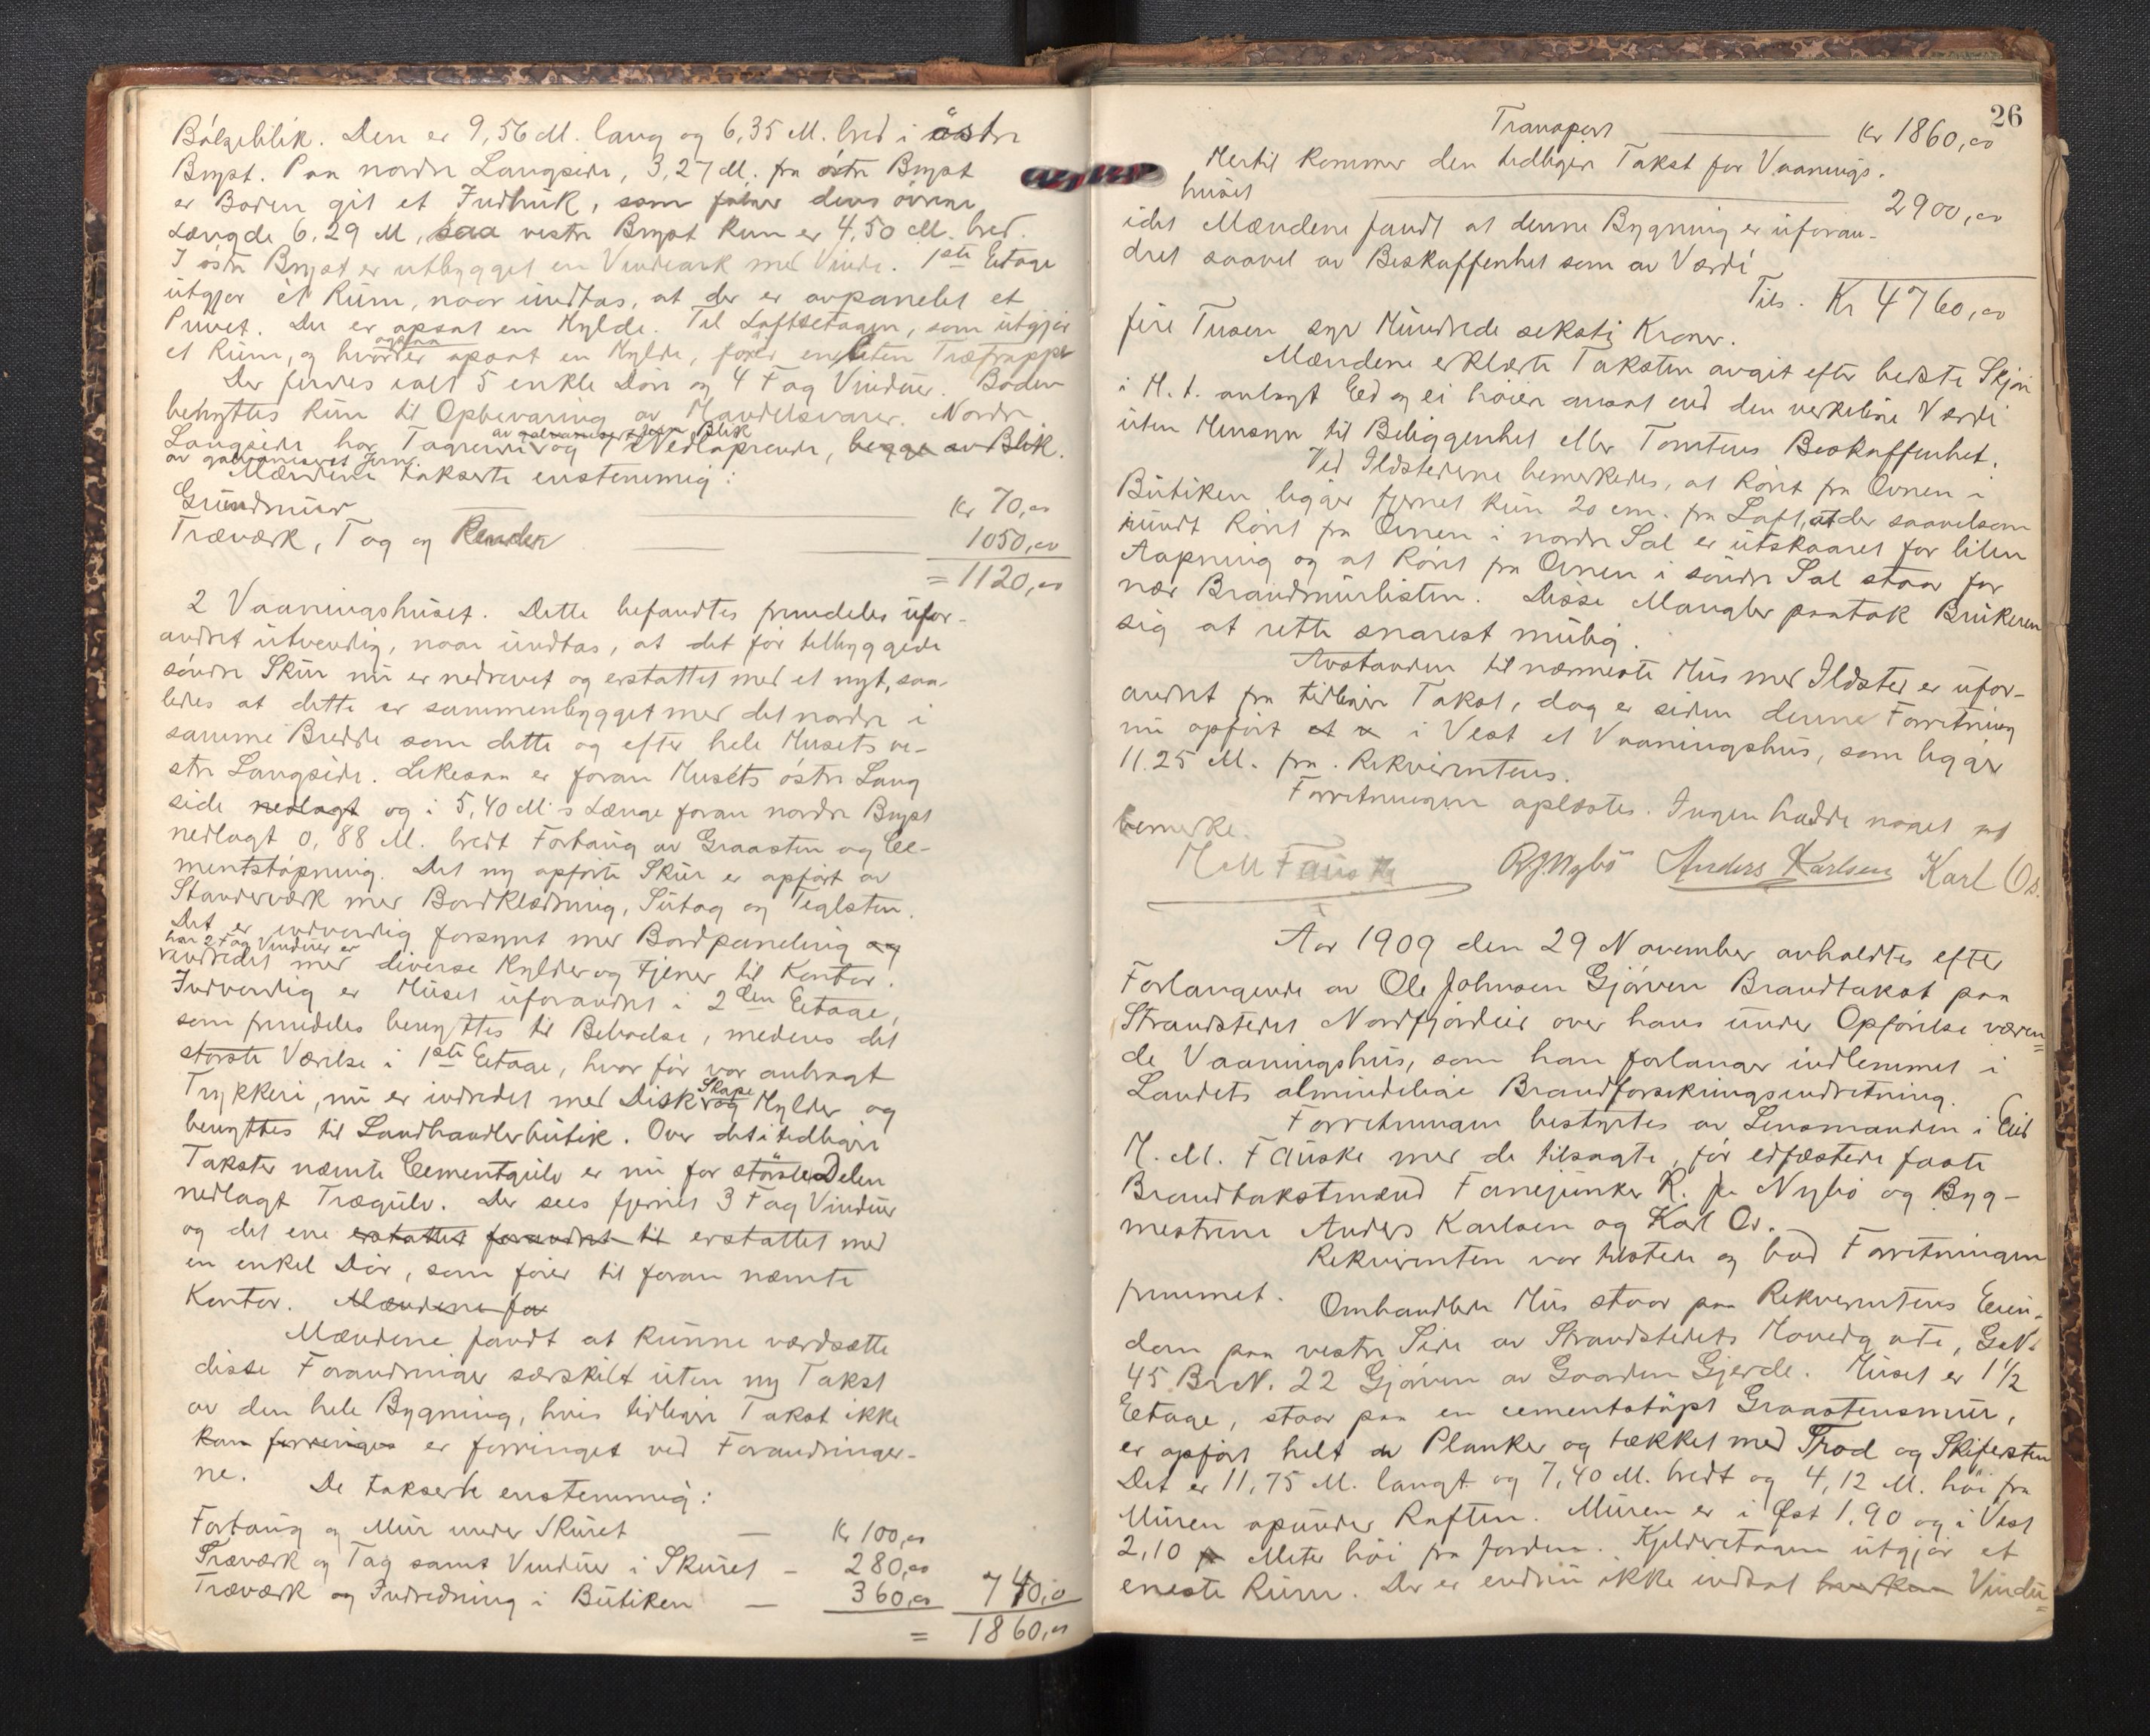 Bölgeblik. Den er 9,56 M. lang og 6,35 M. bred i östre
Bryst. Paa nordre Langside, 3,27 M. fra östre Bryst
er Boden git et Indhuk, som deres övrige
Længde 6.29 M, saa vestre Bryst kun er 4,50 M. bred.
I östre Bryst er utbygget en Vindeark med Vinde. 1ste Etage
utgjør ét Rum, naar undtas, at der er avpanelet et
Privet. Der er opsat en Hylde. Til Loftsetagen, som utgjör
et Rum, og hvor ogsaa er opsat en Hylde, förer en liten Trætrappe
Der findes ialt 5 enkle Döre og 4 Fag Vinduer. Boden
benyttes kun til Opbevaring av Handelsvarer. Nordre
Langside har Tagrende av galvaniseret Jern Blik og 1 Nedlöpsrende, begge av Blik.
av galvaniseret Jern.
Mændene takserte enstemmig:
Grundmur Kr 70,00
Træværk, Tag og Render 1050,00
= 1120,00
2 Vaaningshuset. Dette befandtes fremdeles ufor-
andret utvendig, naar undtas, at det för tilbyggede
söndre Skur nu er nedrevet og erstattet med et nyt, saa-
ledes at dette er sammenbygget med det nordre i
samme Bredde som dette og efter hele Husets ve-
stre Langside. Likesaa er foran Husets östre Lang
side nedlagt og i 5,40 M's Længe foran nordre Bryst
nedlagt 0,88 M. bredt Fortaug av Graasten og Ce-
mentstöpning. Det ny opförte Skur er opfört av
Standerværk med Bordklædning, Sutag og Teglsten.
Det er indvendig forsynt med Bordpaneling og
har 2 Fag Vinduer er
indredet med diverse Hylder og tjener til Kontor.
Indvendig er Huset uforandret i 2den Etage,
som fremdeles benyttes til Beboelse, medens det
störste Værelse i 1ste Etage, hvor för var anbragt
Trykkeri, nu er indredet med Disk og Skape Hylder og
benyttes til Landhandlerbutik. Over det i tidligere
Takster nævnte Cementgulv er nu for störste Delen
nedlagt Trægulv. Der sees fjernet 3 Fag Vinduer
og det ene erstattet forandret til erstattet med
en enkel Dör, som förer til foran nævnte
Kontor. Mændene fa
Mændene fandt at kunne værdsætte
disse Forandringer særskilt uten ny Takst
av den hele Bygning, hvis tidligere Takst ikke
kan forringes er forringet ved Forandringer-
ne. De takserte enstemmig:
Fortaug og Mur under Skuret — Kr 100,00
Træværk og Tag samt Vinduer i Skuret - 280,00
Træværk og Indredning i Butiken — 360,00 740,00
= 1860,00
26
Transport Kr 1860,00
Hertil kommer den tidligere Takst for Vaanings-
huset 2900,00
idet Mændene fandt at denne Bygning er uforan-
dret saavel av Beskaffenhet som av Værdi
Tils. Kr 4760,00
fire Tusen syv Hundrede seksti Kroner.
Mændene erklærte Taksten avgit efter bedste Skjön
i H. t. avlagt Ed og ei höiere ansat end den verkelige Værdi
uten Hensyn til Beliggenhet eller Tomtens Beskaffenhet.
Ved Ildstederne bemerkedes, at Röret fra Ovnen i
Butiken ligger fjernet kun 20 cm. fra Loft, at der saavelsom
rundt Röret fra Ovnen i nordre Sal er utskaaret for liten
Aapning og at Röret fra Ovnen i söndre Sal staar for
nær Brandmurlisten. Disse Mangler paatok Brukeren
sig at rette snarest mulig.
Avstanden til nærmeste Hus med Ildsted er ufor-
andret fra tidligere Takst, dog er siden denne Forretning
nu opfört i Vest et Vaaningshus, som ligger
11.25 M. fra Rekvirentens.
Forretningen oplæstes. Ingen hadde noget at
bemerke.
H M Fauske R J Nybö Anders Karlsen Karl Os.
Aar 1909 den 29 November avholdtes efter
Forlangende av Ole Johnsen Gjörven Brandtakst paa
Strandstedet Nordfjordeid over hans under Opförelse væren=
de Vaaningshus, som han forlanger indlemmet i
Landets almindelige Brandforsikringsindretning.
Forretningen bestyrtes av Lensmanden i Eid
H. M. Fauske med de tilsagte, för edfæstede faste
Brandtakstmænd Fanejunker R. J. Nybö og Byg-
mestrene Anders Karlsen og Karl Os.
Rekvirenten var tilstede og bad Forretningen
fremmet. Omhandlede Hus staar paa Rekvirentens Eien-
dom paa vestre Side av Strandstedets Hovedgate, G.N.
45 Br.N. 22 Gjörven av Gaarden Gjerde. Huset er 1½
Etage, staar paa en cementstöpt Graastensmur,
er opfört helt av Planker og tækket med Trod og Skifersten
Det er 11,75 M. langt og 7,40 M. bredt og 4,12 M. höi fra
Muren opunder Raften. Muren er i Øst 1.90 og i Vest
2,10 Meter höi fra Jorden. Kjelderetagen utgjör et
eneste Rum. Der er endnu ikke indsat hverken Vindu=